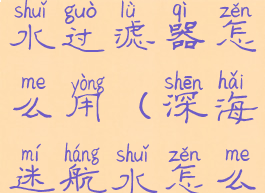 shuǐ guò lǜ qì zěn
水过滤器怎
me yòng shēn hǎi
么用（深海
mí háng shuǐ zěn me
迷航水怎么